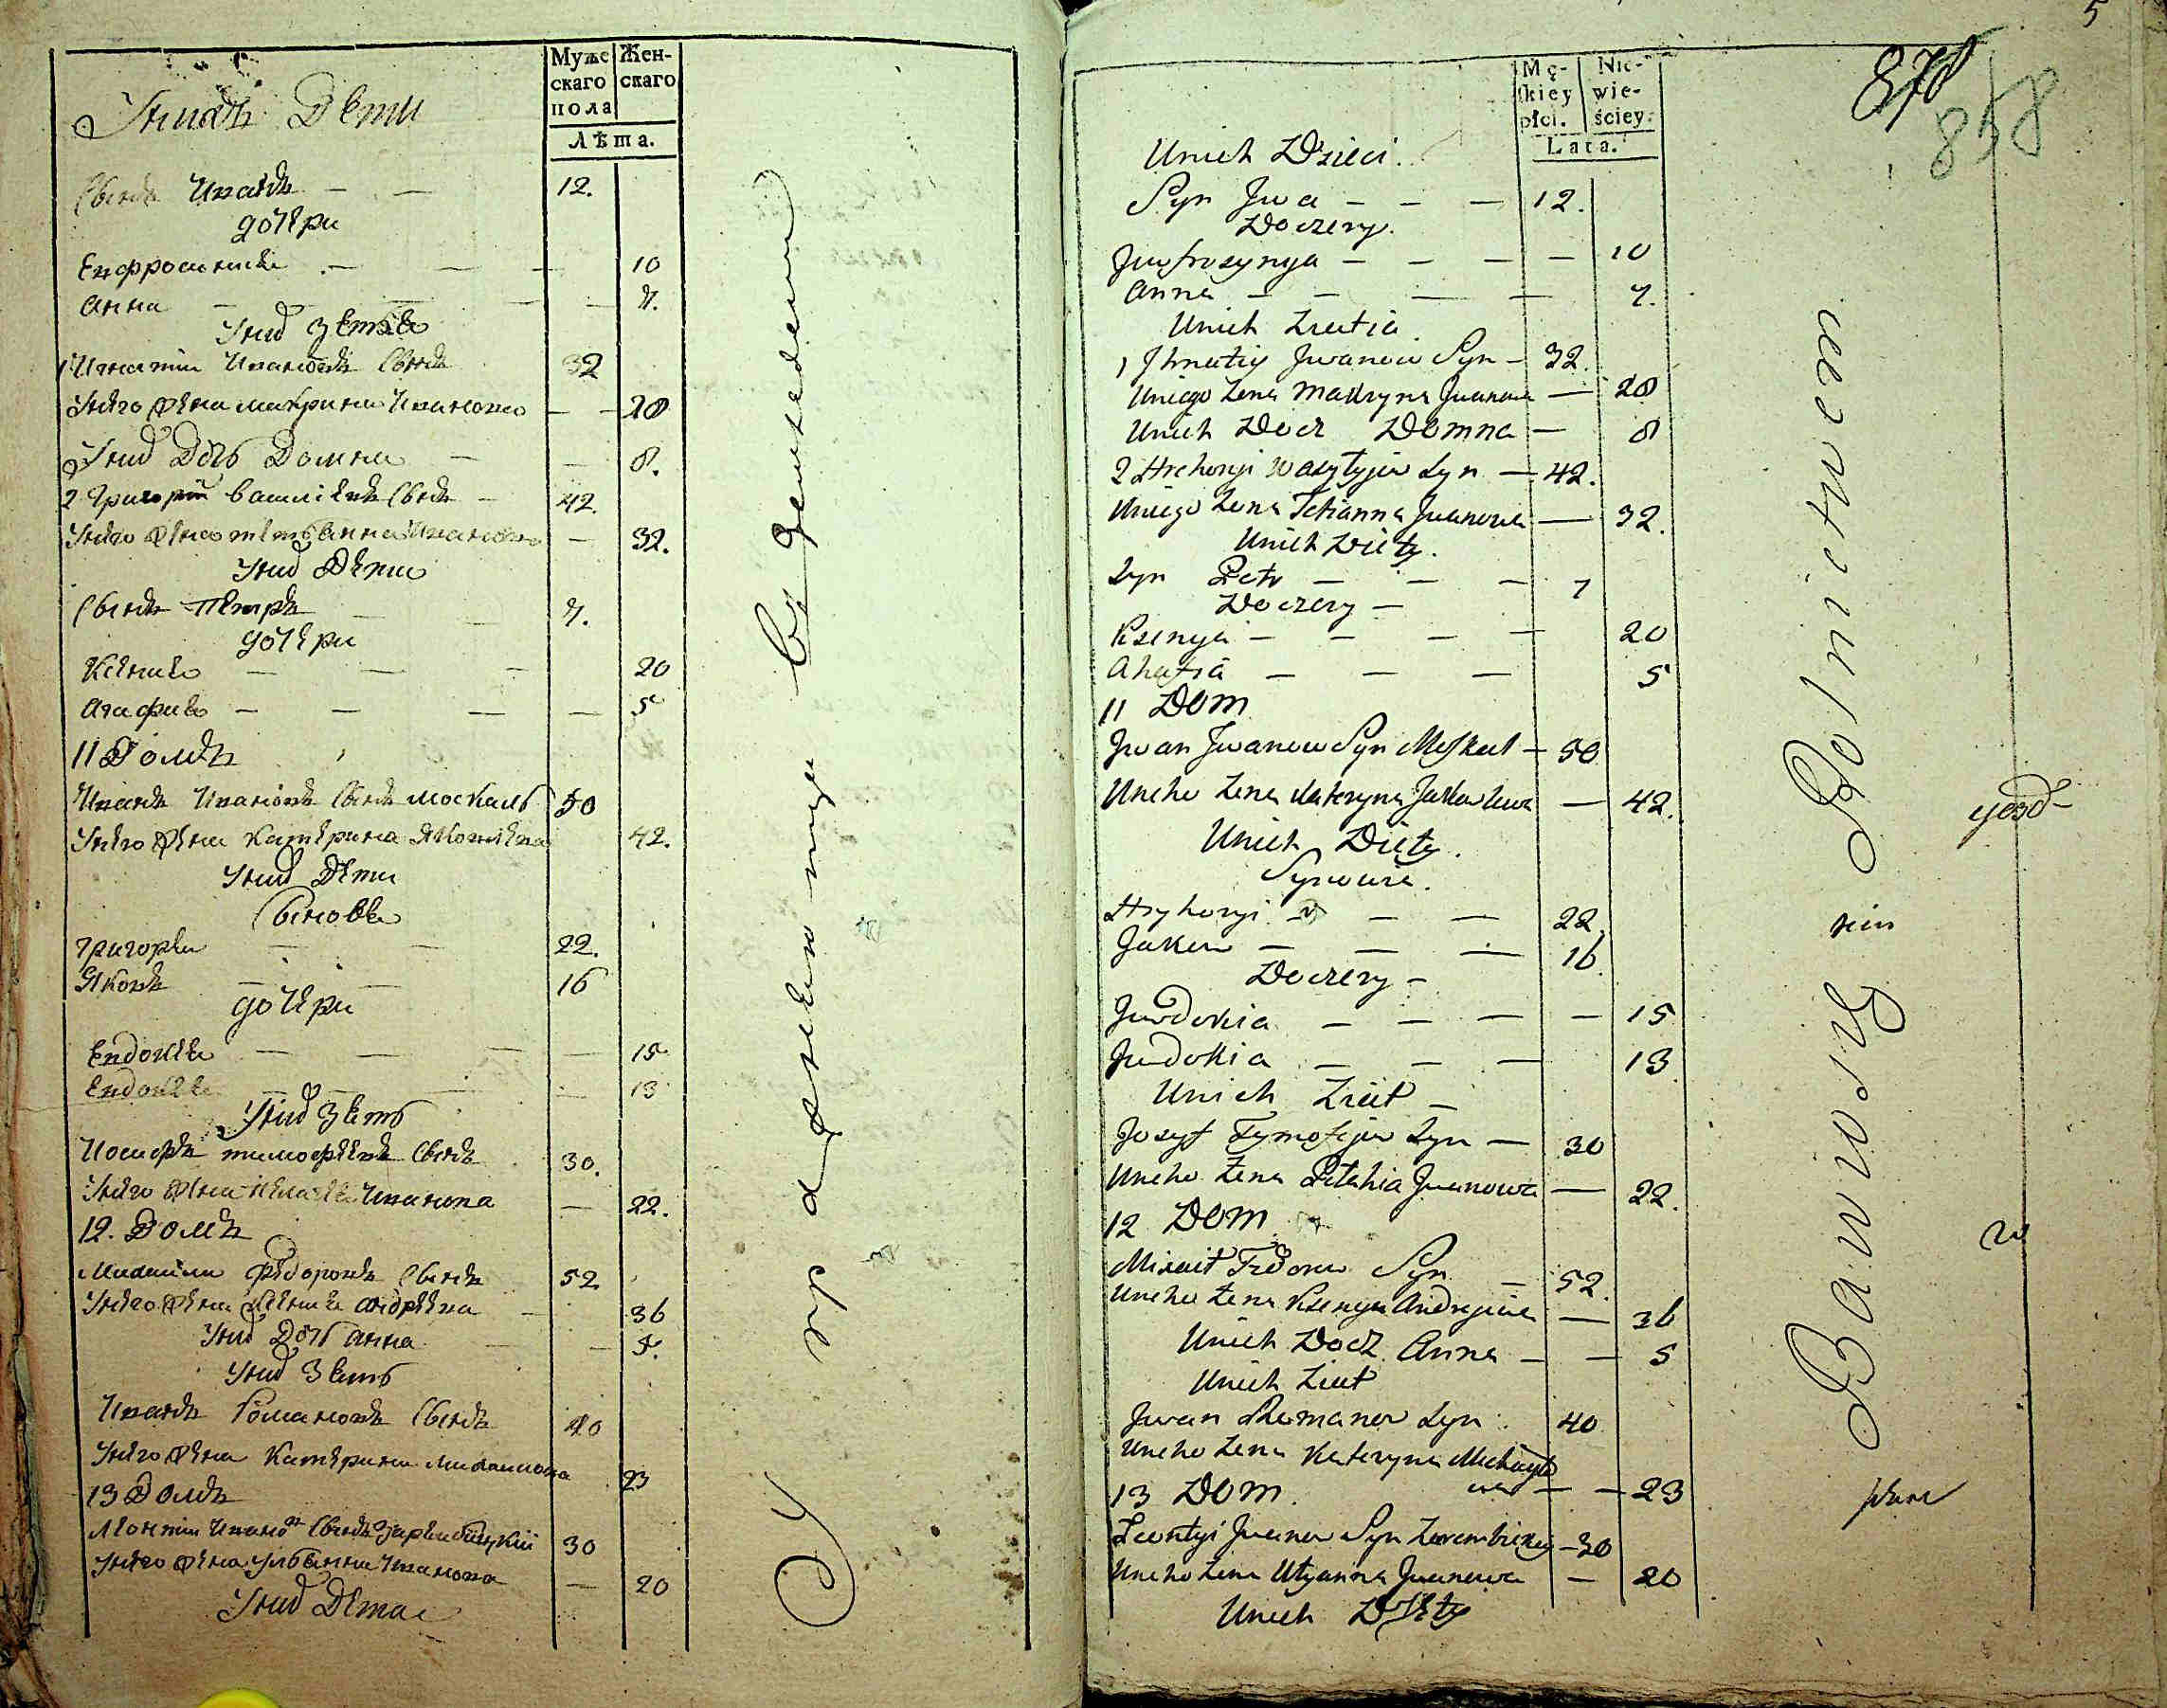 Муже Жен-
скаго скаго
пола
Лѣта.
У нихъ Дети
Сынъ Иванъ — — 12.
дочери
Евфросинія — — — 10
Анна — — — — 7.
У них зятья
1 Игнатiи Ивановъ Сынъ 32
У него жена Макрина Иванова — — 28
У них Дочь Домна — — 8.
2 Григорiй Василiевъ Сынъ — 42.
У него жена Тетьянна Иванова — 32.
У них Дети
Сынъ Петръ — — 7.
дочери
Ксения — — — 20
Агафия — — — — 5
11 Домъ
Иванъ Ивановъ Сынъ Москаль 50
У него жена Катерина Яковлева 42.
У них Дети
Сыновья
Григорий — — 22.
Яковъ — — 16
дочери
Евдокия — — — — 15
Евдокия — — — — 13
У них Зять
Иосифъ Тимофеевъ Сынъ 30.
У него жена Пелагея Иванова — 22.
12. Домъ
Михаила Федоровъ Сынъ 52
У него жена Ксения Андреева — 36
У них Дочь Анна — — 5.
У них Зять
Иванъ Романовъ Сынъ 40
У него жена Катерина Михаилова 23
13 Домъ
Леонтiи Иванов Сынъ Зарембицкiй 30
У него жена Ульянна Иванова — 20
У них Дети
5
878
858
Mę- Nie-
skiey wie-
płci. ściey.
Lata.
Unich Dzieci.
Syn Jwa — — — 12.
Doczery.
Juwfrosynya — — — — 10
Anna — — — — 7.
Unich Ziatia
1 Jhnatiy Jwanow Syn — 32.
Uniego Zena Makryna Jwanowa — 28
Unich Docz Domna — 8
2 Hrehoryi Wasylyjew Syn — 42.
Uniego Zena Tetianna Jwanowa — 32.
Unich Diety.
Syn Petr — — — 7
Doczery —
Ksenya — — — — 20
Ahafia — — — 5
11 Dom
Jwan Jwanow Syn Moskal — 50
Uneho Zena Kateryna Jakowlewa — 42.
Unich Diety.
Synowia.
Hryhoryi — — — 22.
Jakow — — — 16.
Doczery —
Juwdokia — — — — 15
Juwdokia — — — 13
Unich Ziat —
Josyf Tymofejew Syn — 30
Uneho Zena Pelahia Jwanowa — 22.
12 Dom
Mixait Fedorow Syn — 52.
Uneho Zena Ksenya Andrejewa — 36
Unich Docz Anna — — 5
Unich Ziat
Jwan Romanow Syn 40
Uneho Zena Kateryna Michayło
wa — — 23
13 Dom.
Leontyi Jwanow Syn Zarembickij — 30
Uneho Zena Ulyanna Jwanowa — — 20
Unich Diety